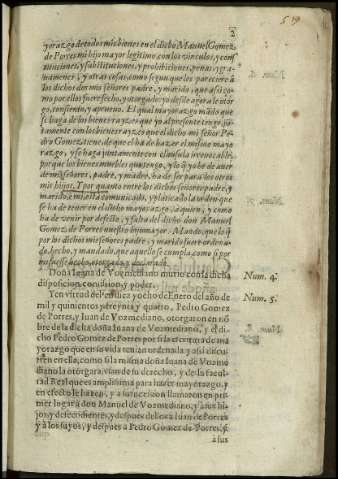 2
yorazgo de todos mis bienes en el dicho Manuel Gomez
de Porres mi hijo mayor legitimo, con los vinculos, y con
diciones, y substituciones, y prohibiciones, penas, y gra-
uamenes, y otras cosas, como segun que les pareciere à
los dichos dos mis señores padre, y marido, que assi co
mo por ellos fuere fecho, y otorgado yo desde agora le otor
go, consiento, y aprueuo. El qual mayorazgo mãdo que
se haga de los bienes rayzes que yo al presente tengo, jũ
tamente con los bienes rayzes que el dicho mi señor Pe-
dro Gomez tiene, de que el ha de hazer el mesmo mayo
razgo, y se haga juntamente con clausula irreuocable,
porque los bienes muebles que tengo, y lo q̃ yo he de auer
de mis señores, padre, y madre, ha de ser para los otros
mis hijos. Y por quanto entre los dichos señores padre, y
marido, è mi està comunicado, y platicado la orden que
se ha de tener en el dicho mayorazgo, à quien, y como
ha de venir por defecto, y falta del dicho don Manuel
Gomez de Porres nuestro hijo mayor. Mando, que lo q̃
por los dichos mis señores padre, y marido fuere ordena-
do, hecho, y mandado, que aquello se cumpla como si por
mi fuesse hecho, otorgado, y declarado.
Doña Iuana de Vozmediano murio con la dicha
disposicion, comission, y poder.
Num. 4.
Y en virtud del en diez y ocho de Enero del año de
Num. 5.
mil y quinientos y treynta y quatro, Pedro Gomez
de Porres, y Iuan de Vozmediano, otorgaron en nõ
bre de la dicha doña Iuana de Vozmediano, y el di
cho Pedro Gomez de Porres por si la escritura de ma
yorazgo que en su vida tenian ordenada, y assi discur
rieron en ella, como si la misma doña Iuana de Vozme
diano la otorgàra, vsando de su derecho, y de la facul
tad Real que es amplissima para hazer mayorazgo, y
en efecto le hazen, y a su sucession llamaron en pri
mer lugar à don Manuel de Vozmediano, y à sus hi-
jos, y decendientes, y despues del à Iuan de Porres,
y à los suyos, y despues a Pedro Gomez de Porres, y
à sus